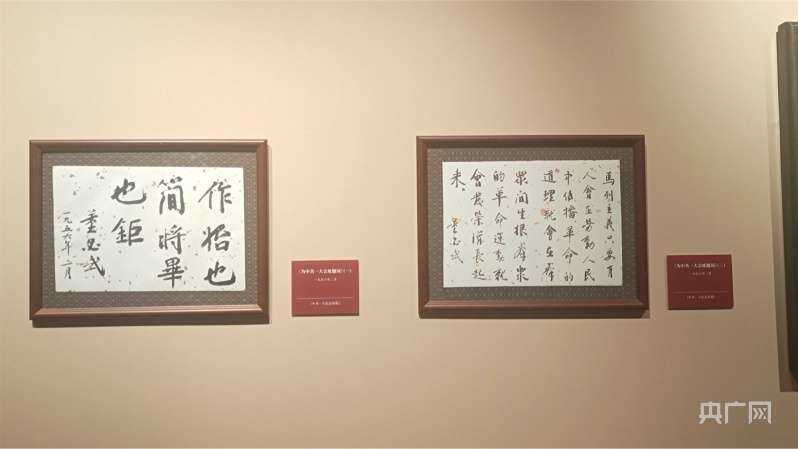 作始也
简将毕
也钜
董必武
一九五六年二月
《为中共一大会址题词》(一)
一九五六年二月
(中共一大纪念馆藏)
馬列主義只要有
人會在劳動人民
中传播革命的
道理就會在羣
眾间生根羣眾
的革命运動就
會发荣滋長起
来
董必武
《为中共一大会址题词》(二)
一九五六年二月
(中共一大纪念馆藏)
央广网